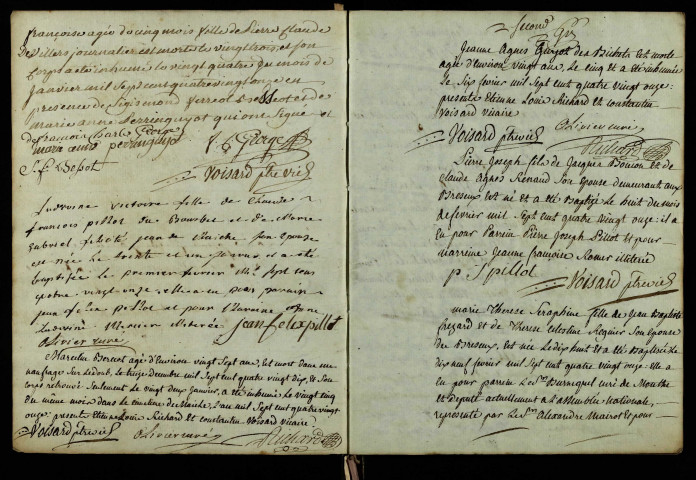 françoise agée de cinq mois fille de Pierre Claude
Devillers journalier est morte le vingt trois et son
corps a été inhumé le vingt quatre du mois de
janvier mil sept cent quatre vingt onze en
presence de Sigismond Verrot et de
marie anne Perringuyot qui ont signé et
de françois Barbe George
marie anne perringuyot f. b. George
Voisard ptre vic
Ludovine victoire fille de Claude
françois pillot du Bourbet et de Marie
gabriel felicité jean de son epouse
est née le trente et un janvier et a été
baptisée le premier fevrier mil sept cent
quatre vingt onze elle a eu pour parain
jean felix pillot et pour maraine
Ludovine Monnier illiterée jean felix pillot
Olivier curé
Marcelin agé d'environ vingt sept ans, est mort dans un
naufrage sur le doub, le treize decembre mil sept cent quatre vingt dix, et son
corps retrouvé seulement le vingt deux janvier, a été inhumé le vingt cinq
du même mois dans le cimetiere l'an mil sept cent quatre vingt
onze: presents Etienne Louis Richard et constantin Voisard vicaire
Voisard ptre vic Olivier curé Richard
Second
Jeanne Agnes des Bichets est morte
agée d'environ vingt ans, le cinq et a été inhumée
le six fevrier mil sept cent quatre vingt onze:
presents Etienne Louis Richard et constantin
Voisard vicaire
Voisard ptre vic Olivier curé
Richard
Pierre Joseph fils de Jacques et de
claude Agnès Renaud son epouse demeurant aux
Breseux est né et a été Baptizé le huit du mois
de fevrier mil sept cent quatre vingt onze: il a
eu pour parrein Pierre Joseph Pillot et pour
marreine jeanne françoise illiteré
p. j pillot
Voisard ptre vic
marie Therese Seraphine fille de jean Baptiste
frezard et de Therese celestine son epouse
des Breseux, est née le dix huit et a été Baptizée le
dix neuf fevrier mil sept cent quatre vingt onze. elle a
eu pour parein le Sr. Burnequel curé de Mouthe
et deputé actuellement a l'assemblée nationale,
representé par le Sr. Alexandre Mairot et pour